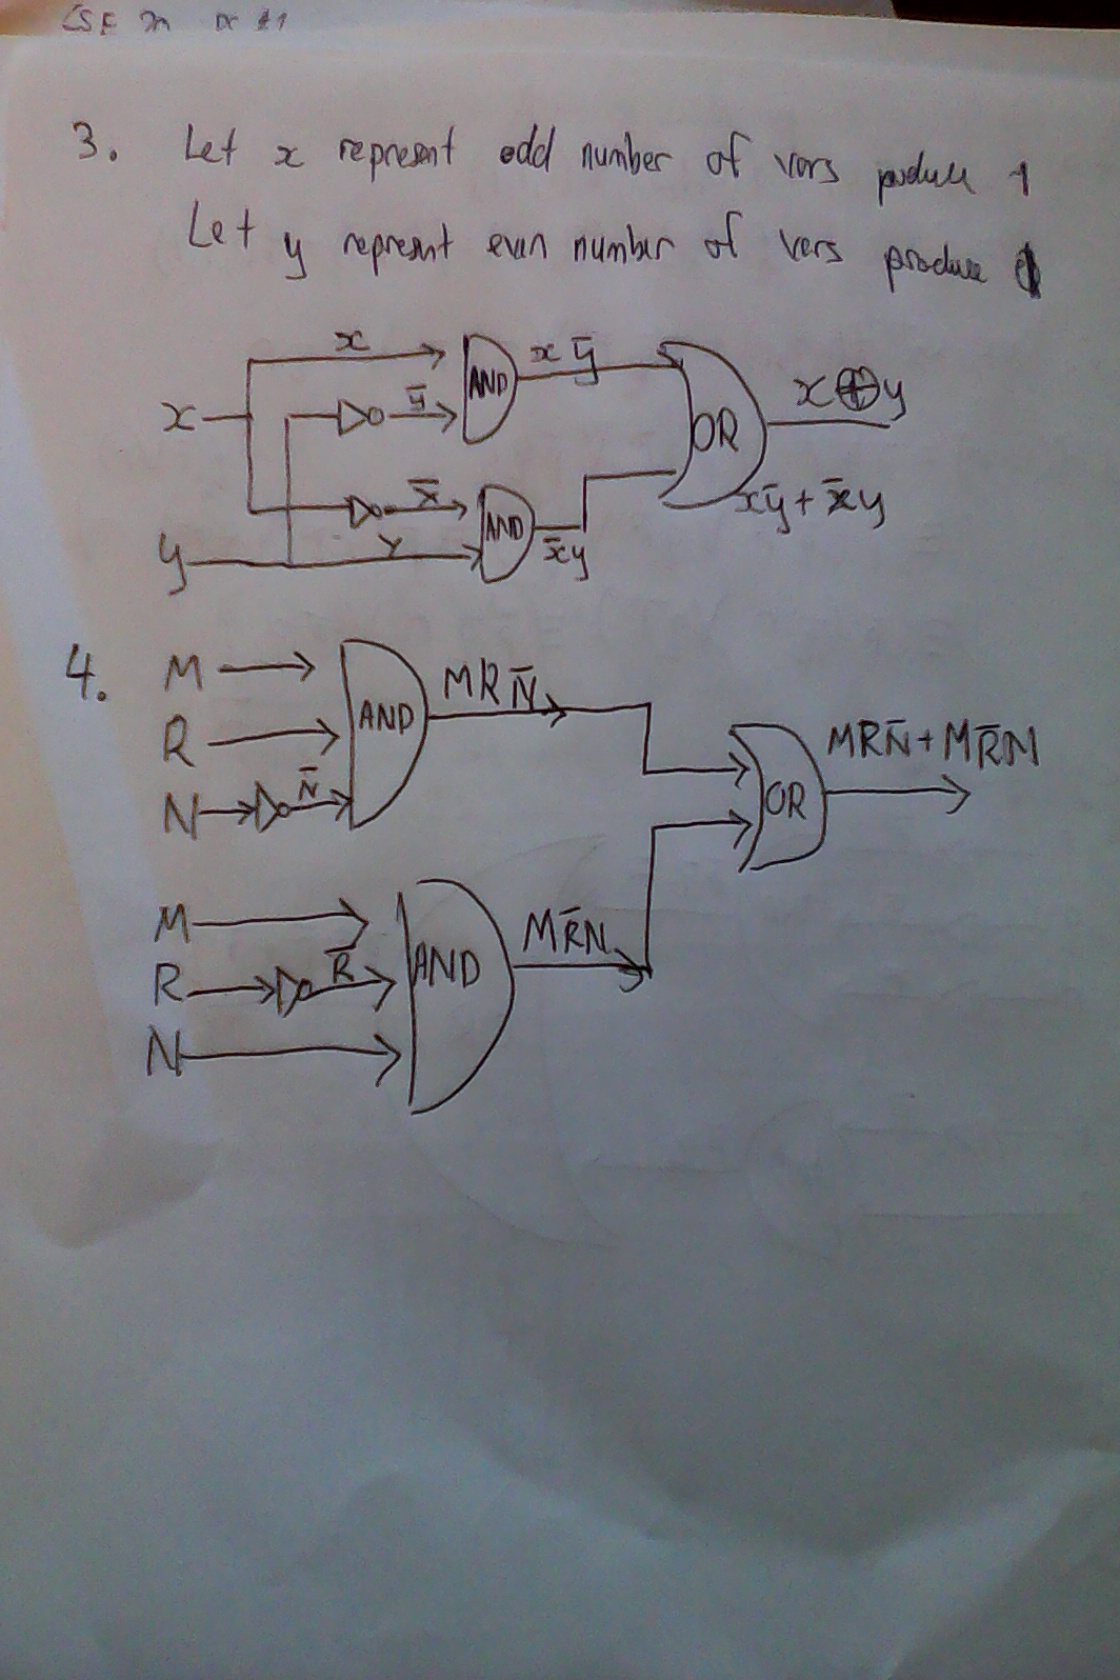 CSE
#1
3. Let x represent odd number of vars produce 1
Let y represent even number of vars produce
x
x ȳ
AND
x⊕y
x
ȳ
OR
x̄
xȳ + x̄y
AND
y
y
x̄y
4. M
AND
MRN̄
R
MRN̄ + MR̄N
N
N̄
OR
M
AND
MR̄N
R
R̄
N